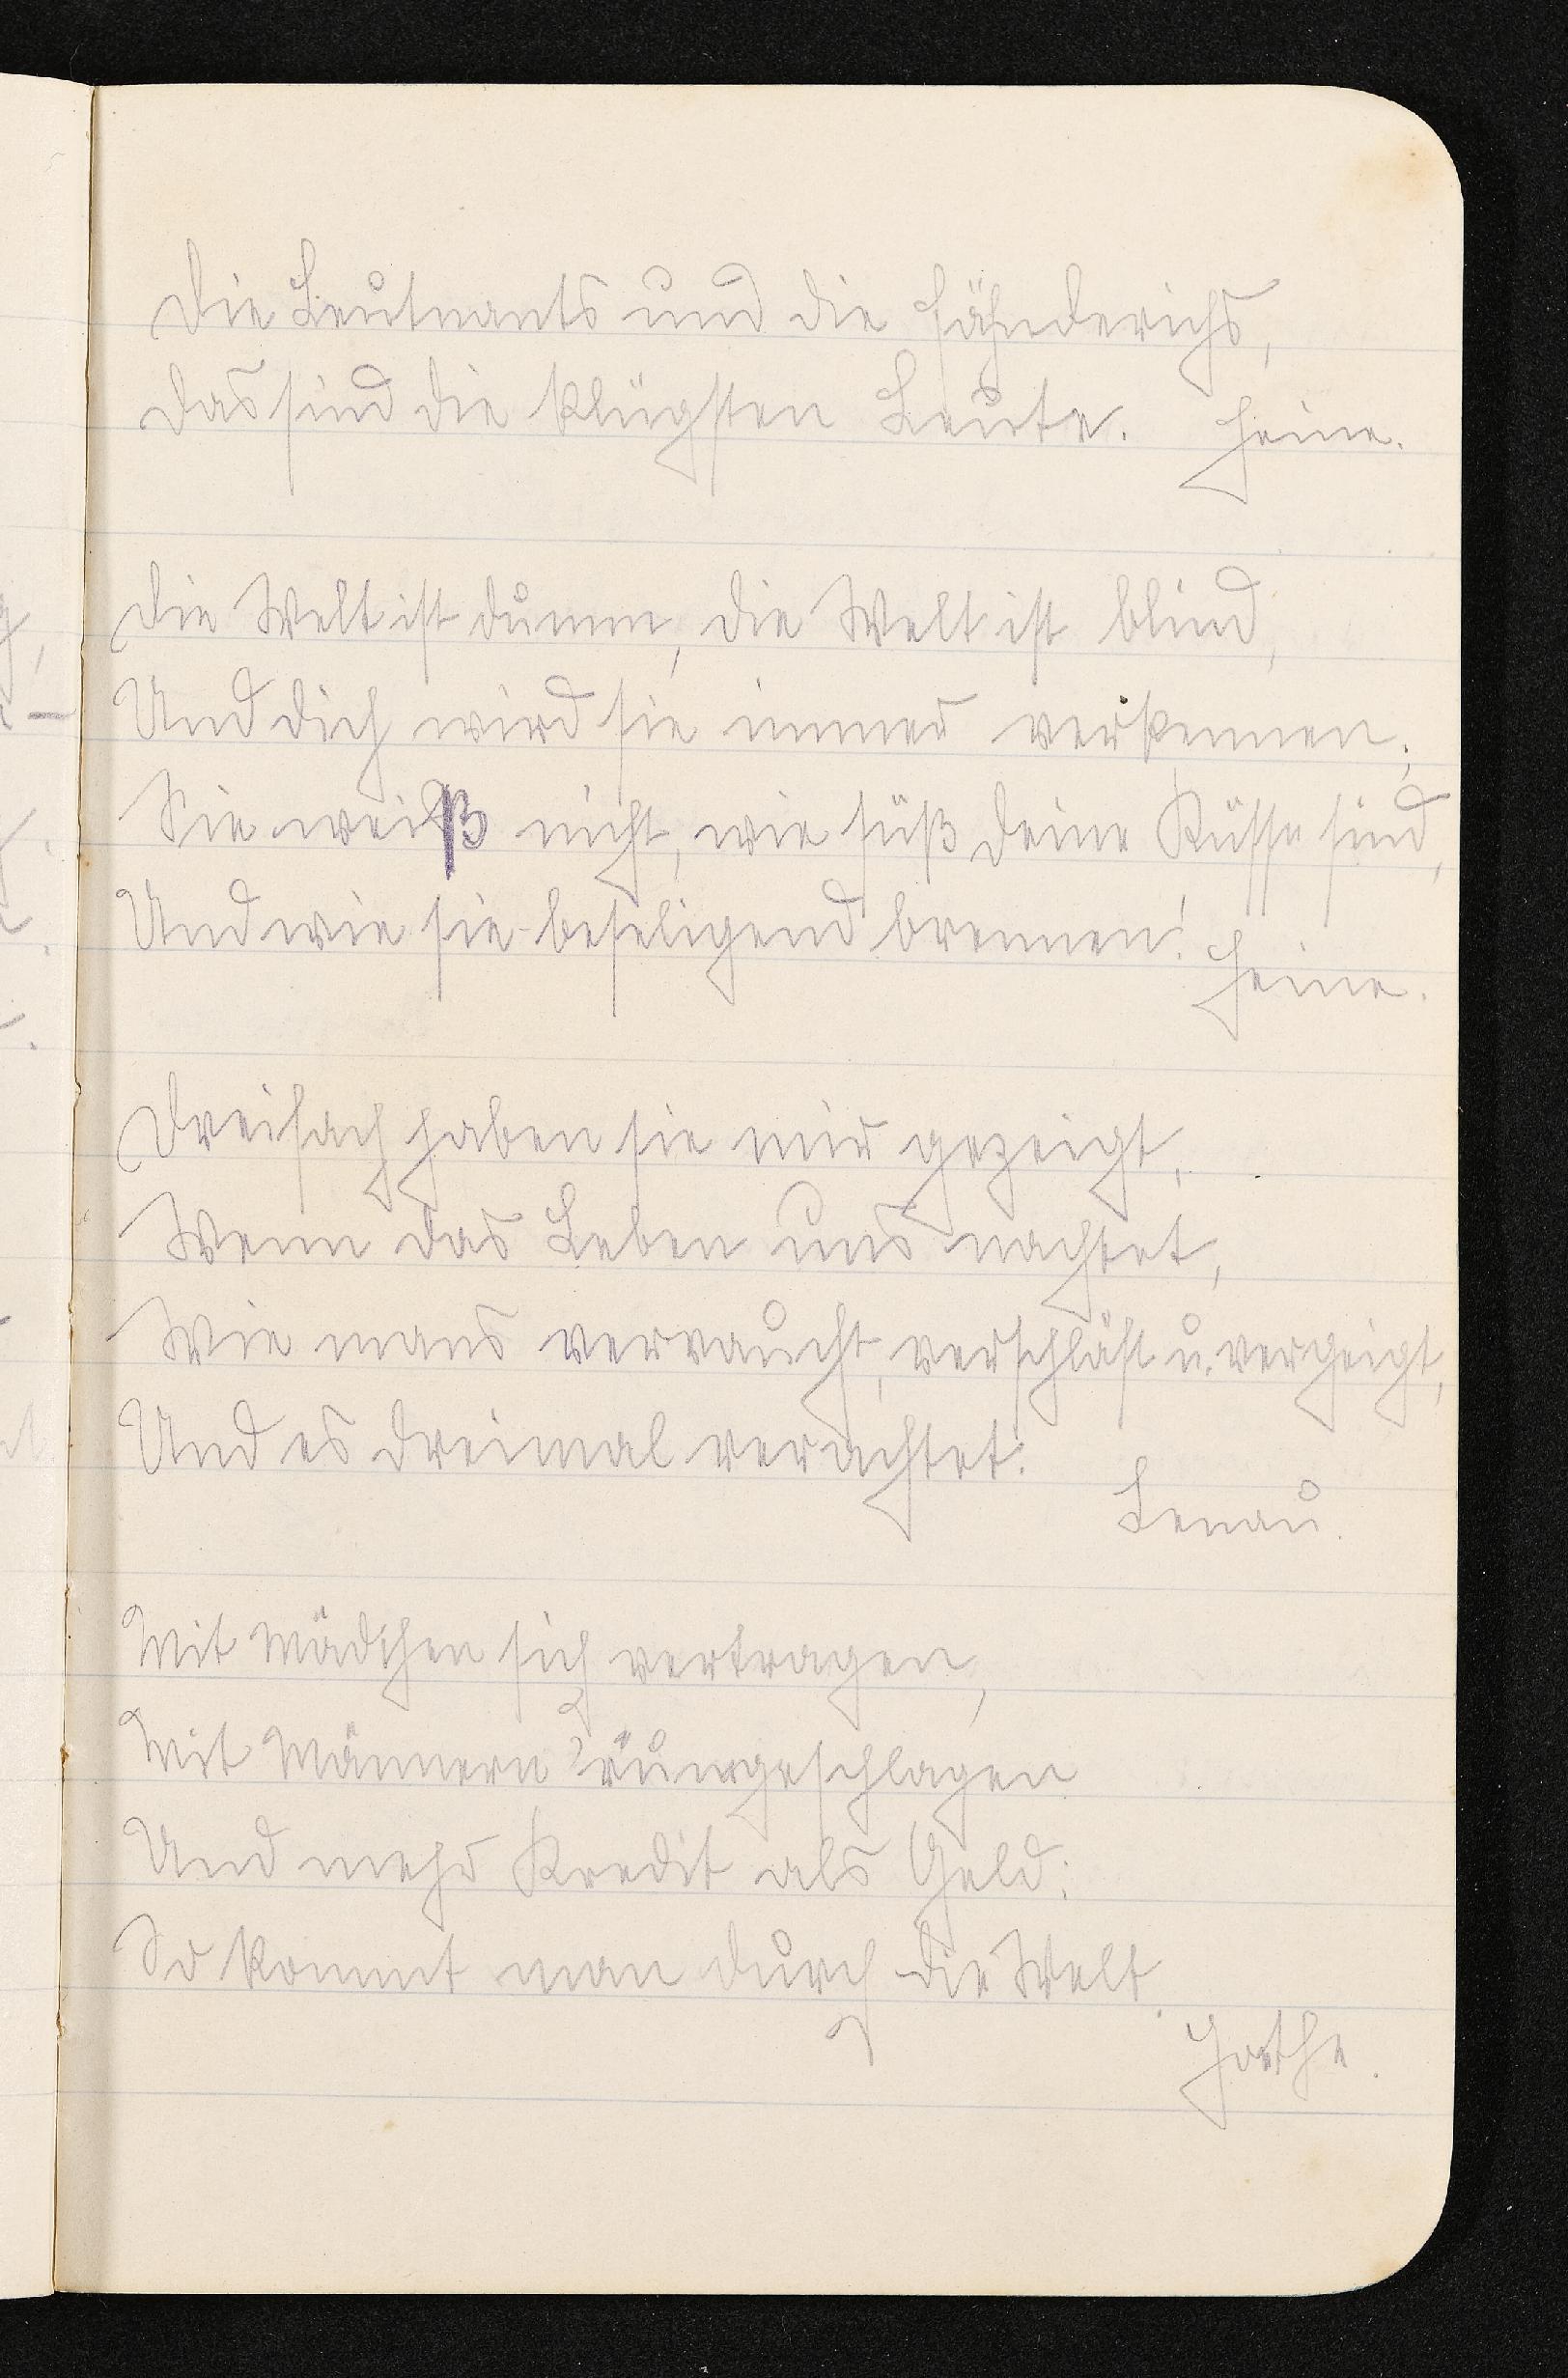 Die Leutnants und die Fähnderichs,
Das sind die klügsten Leute. Heine.
Die Welt ist dumm, die Welt ist blind,
Und dich wird sie immer verkennen;
Sie weiß nicht, wie süß deine Küsse sind,
Und wie sie beseligend brennen!
Heine.
Dreifach haben sie mir gezeigt,
Wenn das Leben uns nachtet,
Wie mans verraucht, verschläft u. vergeigt,
Und es dreimal verachtet.
Lenau.
Mit Mädchen sich vertragen,
Mit Männern 'rumgeschlagen
Und mehr Kredit als Geld:
So kommt man durch die Welt.
Goethe.